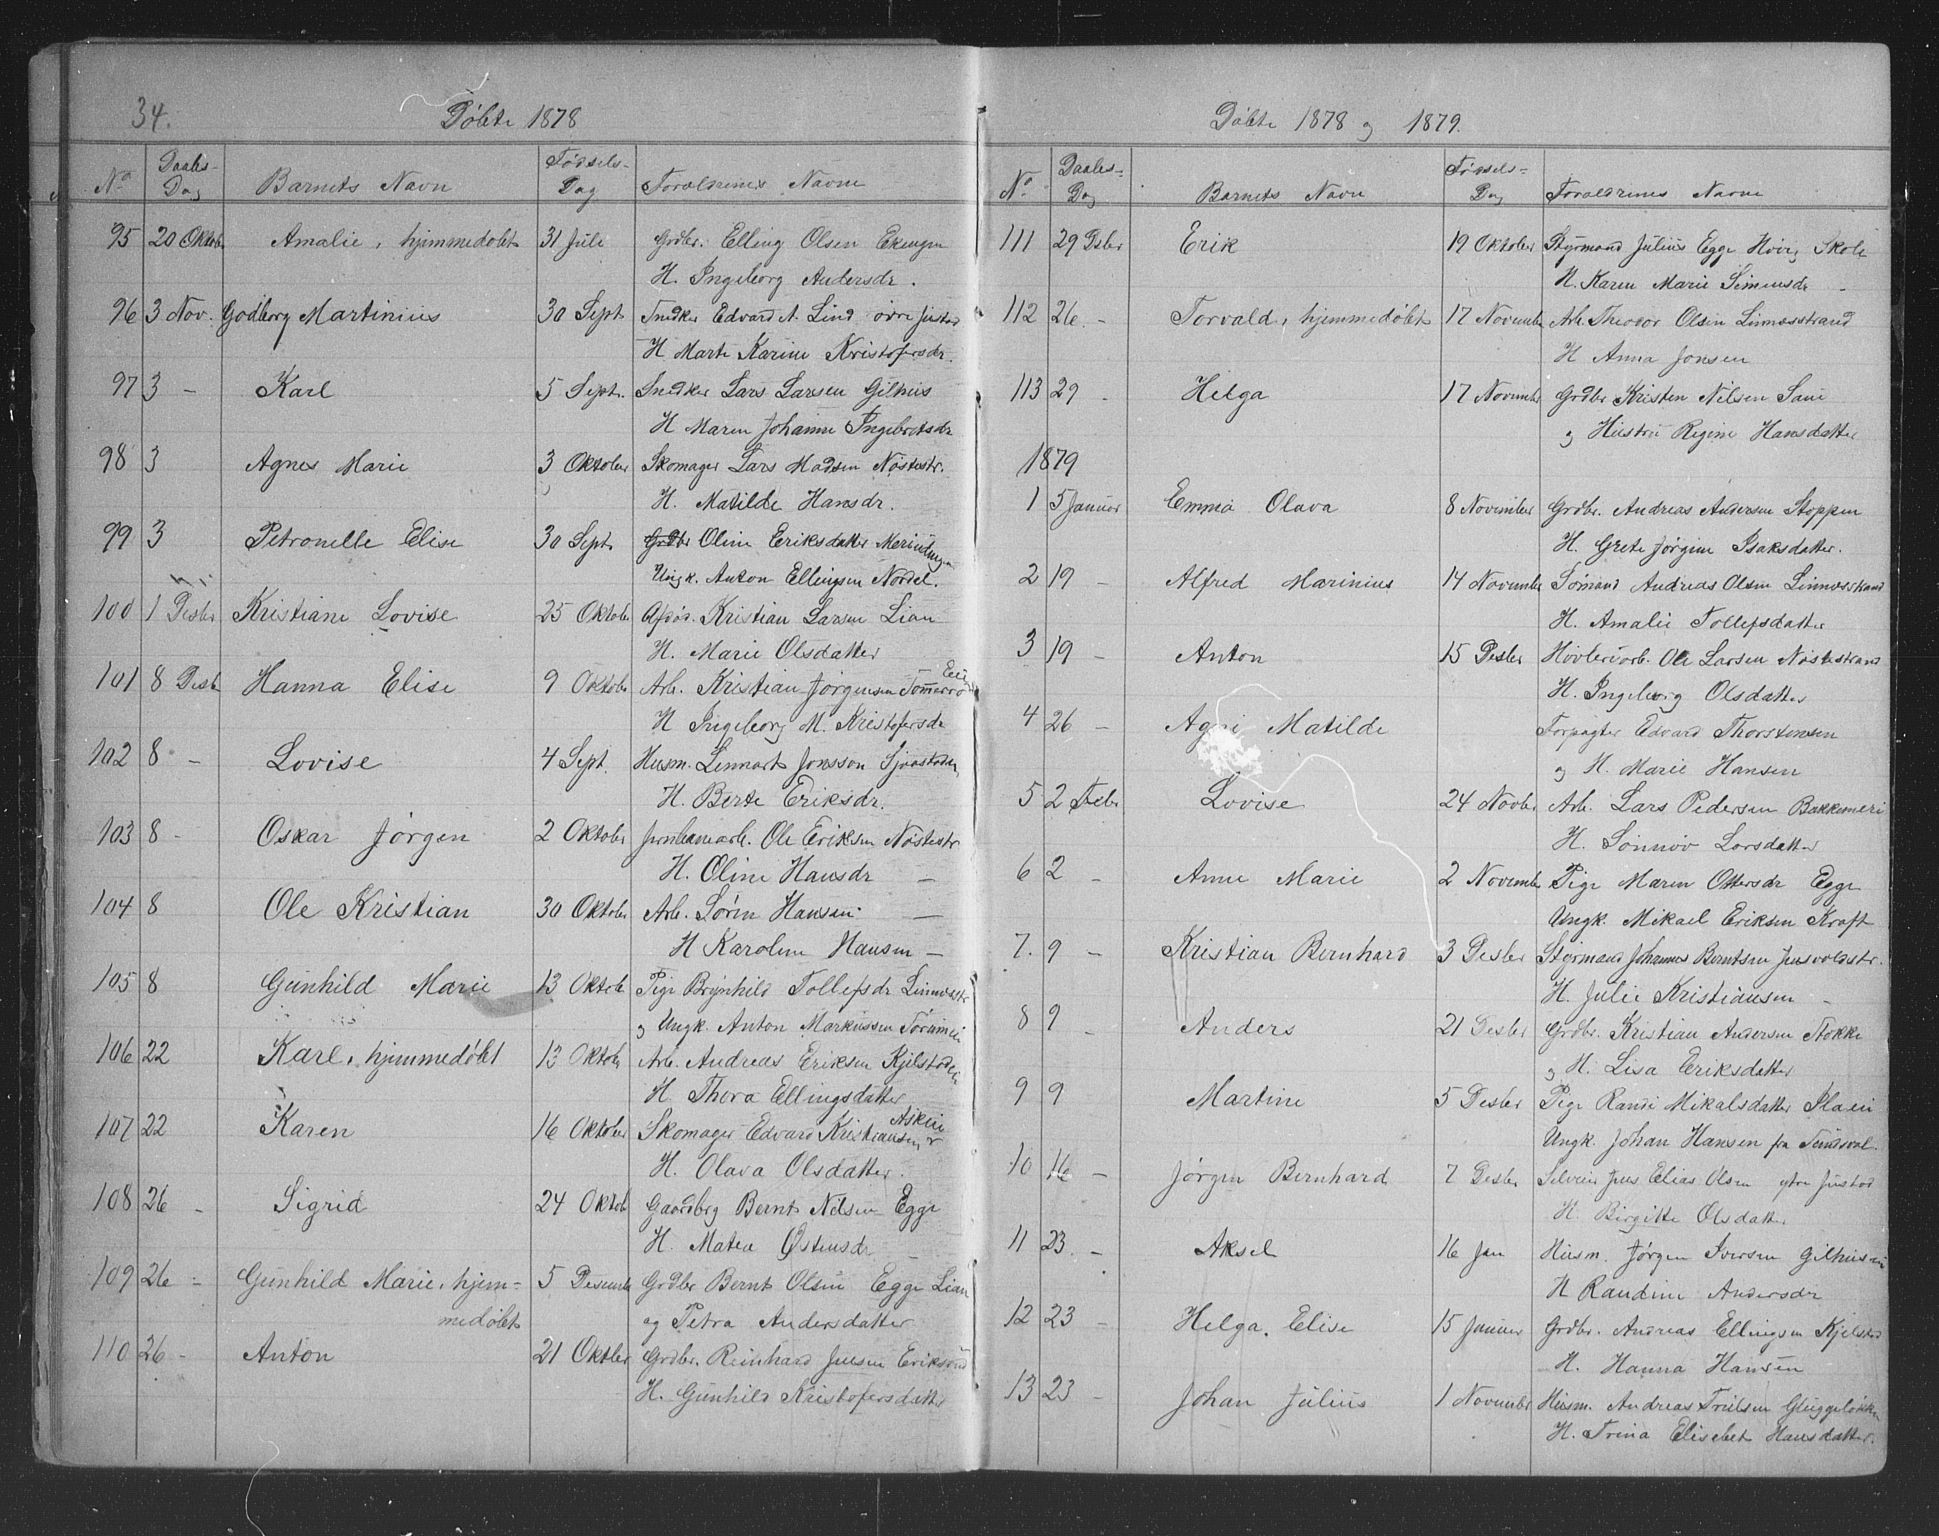 34.
Döbte 1878
No Daabs-Dag Barnets Navn Fødsels-Dag Forældrenes Navne
95 20 Oktob Amalie, hjemmedøbt 31 Juli Grdbr. Elling Olsen
H. Ingeborg Andersdr.
96 3 Nov. Godborg Martinius 30 Sept. Snedker Edvard A. Lind övre Justad
H. Marte Karine Kristofersdr.
97 3 - Karl 5 Sept. Snedker Lars Larsen Gilhus
H. Maren Johanne Ingebretsdr
98 3 Agnes Marie 3 Oktober Skomager Lars Madsen Nöstestr.
H. Matilde Hansdr.
99 3 Petronelle Elise 30 Sept. Grdbr Oline Eriksdatter
Ungk. Anton Ellingsen Nordal.
100 1 Desbr Kristiane Lovise 25 Oktober Afdöd. Kristian Larsen Lian
H. Marie Olsdatter
101 8 Desb Hanna Elise 9 Oktober Arb. Kristian Jörgensen
H Ingeborg M. Kristofersdr
102 8 - Lovise 4 Sept. Husm. Lennart Jonsson
H. Berte Eriksdr.
103 8 - Oskar Jörgen 2 Oktober Jernbanearb. Ole Eriksen Nöstestr
H. Oline Hansdr -
104 8 Ole Kristian 30 Oktober Arb. Sören Hansen -
H Karoline Hansen -
105 8 Gunhild Marie 13 Oktob Pige Brynhild Tollefsdr Linnesstr
og Ungk. Anton Markussen
106 22 Karl, hjemmedøbt 13 Oktob Arb. Andreas Eriksen
H. Thora Ellingsdatter
107 22 Karen 16 Oktober Skomager Edvard Kristiansen
H. Olava Olsdatter.
108 26 - Sigrid 24 Oktob Gaardbrg Bernt Nilsen Egge
H. Matea Östensdr -
109 26 - Gunhild Marie, hjem- 5 Desembe Grdbr Bernt Olsen Egge Lian
medøbt og Petra Andersdatter
110 26 - Anton 21 Oktber Grdbr. Reinhard Jensen
H. Gunhild Kristofersdatter
Döbte 1878 og 1879.
No Daabs-Dag Barnets Navn Fødsels-Dag Forældrenes Navne
111 29 Dsbr Erik 19 Oktober Styrmand Julius Egge
H. Karen Marie Simensdr -
112 26 - Torvald, hjemmedøbt 17 November Arb. Theodor Olsen Linnesstrand
H Anna Jonsen
113 29 - Helga 17 November Grdbr Kristen Nilsen Saue
og Hustru Regine Hansdatter
1879
1 5 Januar Emma Olava 8 November Grdbr. Andreas Andersen Stoppen
H. Grete Jörgine Isaksdatter.
2 19 - Alfred Marinius 14 November Sömand Andreas Olsen Linnesstrand
H. Amalie Tollefsdatter
3 19 - Anton 15 Desbr Hövleriarb. Ole Larsen Nöstestrand
H. Ingeborg Olsdatter
4 26 - Matilde Forpagter Edvard Thorstensen
og H. Marie Hansen
5 2 Febr Lovise 24 Novbr Arb. Lars Pedersen
H. Sönnöv Larsdatter
6 2 - Anne Marie 2 November Pige Maren Ottersdr Egge
Ungk. Mikael Eriksen Kraft
7. 9 - Kristian Bernhard 3 Desber Styrmand Johannes Berntsen
H. Julie Kristiansen -
8 9 - Anders 21 Desber Grdbr. Kristian Andersen Stokke
og H. Lisa Eriksdatter
9 9 Martine 5 Desber Pige Randi Mikalsdatter
Ungk. Johan Hansen fra Sundsval.
10 16 - Jörgen Bernhard 7 Desber Jens Elias Olsen ytre Justad
H. Birgitte Olsdatter
11 23. - Aksel 16 Jan Husm. Jörgen Iversen
H Randine Andersdr
12 23 - Helga Elise 15 Januar Grdbr. Andreas Ellingsen Kjelstad
H. Hanna Hansen
13 23 - Johan Julius 1 November Husm. Andreas
H. Trina Elisebet Hansdatter.